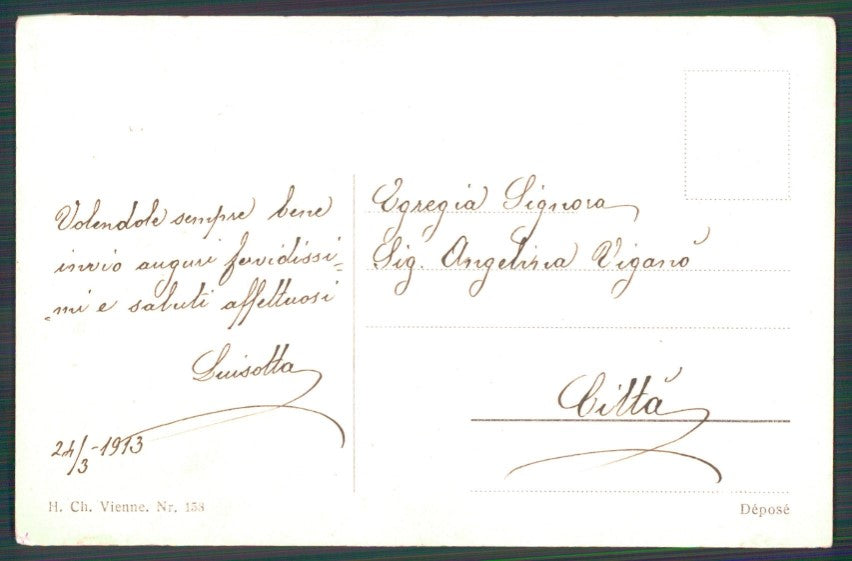 Volendole sempre bene
invio auguri fervidissi=
=mi e saluti affettuosi
Luisotta
24/3-1913
H. Ch. Vienne. Nr. 158
Egregia Signora
Sig. Angelina Viganò
Città
Déposé